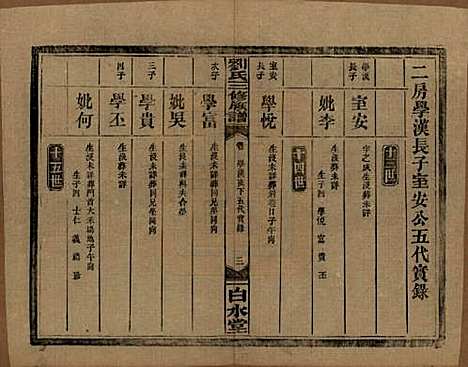 二房學漢長子室安公五代實錄
十三世
學漢長子
室安
字之成生沒葬未詳
妣李
生沒葬未詳
生子四 學悅 富 貴 丕
十四世
室安長子
學悅
生沒未詳
劉氏二修族譜
卷
學漢房下五代實錄
二
白水堂
次子
學富
生沒未詳葬同兄學同向
妣吳
生沒葬未詳
三子
學貴
生沒未詳葬同兄學同向
四子
學丕
生沒未詳
妣何
生沒未詳葬門首大禾場墈子午向
生子四 士仁 義 禮
十五世